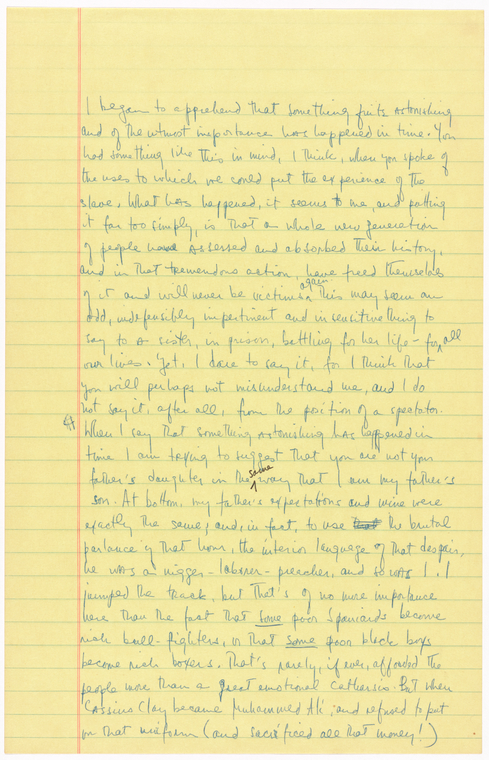 I began to apprehend that something quite astonishing
and of the utmost importance has happened in time. You
had something like this in mind, I think, when you spoke of
the uses to which we could put the experience of the
slave. What has happened, it seems to me, and putting
it far too simply, is that a whole new generation
of people have assessed and absorbed their history,
and in that tremendous action, have freed themselves
of it and will never be victims again. This may seem an
odd, indefensibly impertinent and insensitive thing to
say to a sister, in prison, battling for her life - for all
our lives. Yet, I dare to say it, for I think that
you will perhaps not misunderstand me, and I do
not say it, after all, from the position of a spectator.
When I say that something astonishing has happened in
time I am trying to suggest that you are not your
father's daughter in the same way that I am my father's
son. At bottom, my father's expectations and mine were
exactly the same; and, in fact, to use the brutal
parlance of that hour, the interior language of that despair,
he was a nigger - laborer - preacher, and so was I. I
jumped the track, but that's of no more importance
here than the fact that some poor Spaniards become
rich bull-fighters, or that some poor black boys
become rich boxers. That's rarely, if ever, afforded the
people more than a great emotional catharsis. But when
Cassius Clay became Muhammed Ali; and refused to put
on that uniform (and sacrificed all that money!)